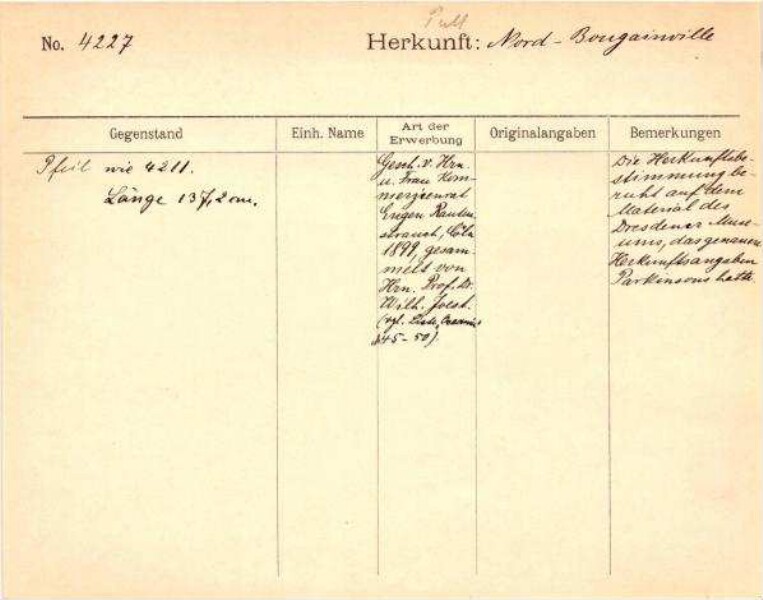 No. 4227
Herkunft: Nord - Bougainville
Gegenstand
Einh. Name
Art der Erwerbung
Originalangaben
Bemerkungen
Pfeil wie 4211.
Länge 137,2 cm.
Gesch. v. Hrn.
u. Frau Kom-
merzienrat
Eugen Rauten-
strauch, Cöln
1899, gesam-
melt von
Hrn. Prof. Dr.
Wilh. Joest.
(vgl. Liste
45-50).
Die Herkunftsbe-
stimmung be-
ruht auf dem
Material des
Dresdener Muse-
ums, das genauere
Herkunftsangaben
Parkinsons hatte.